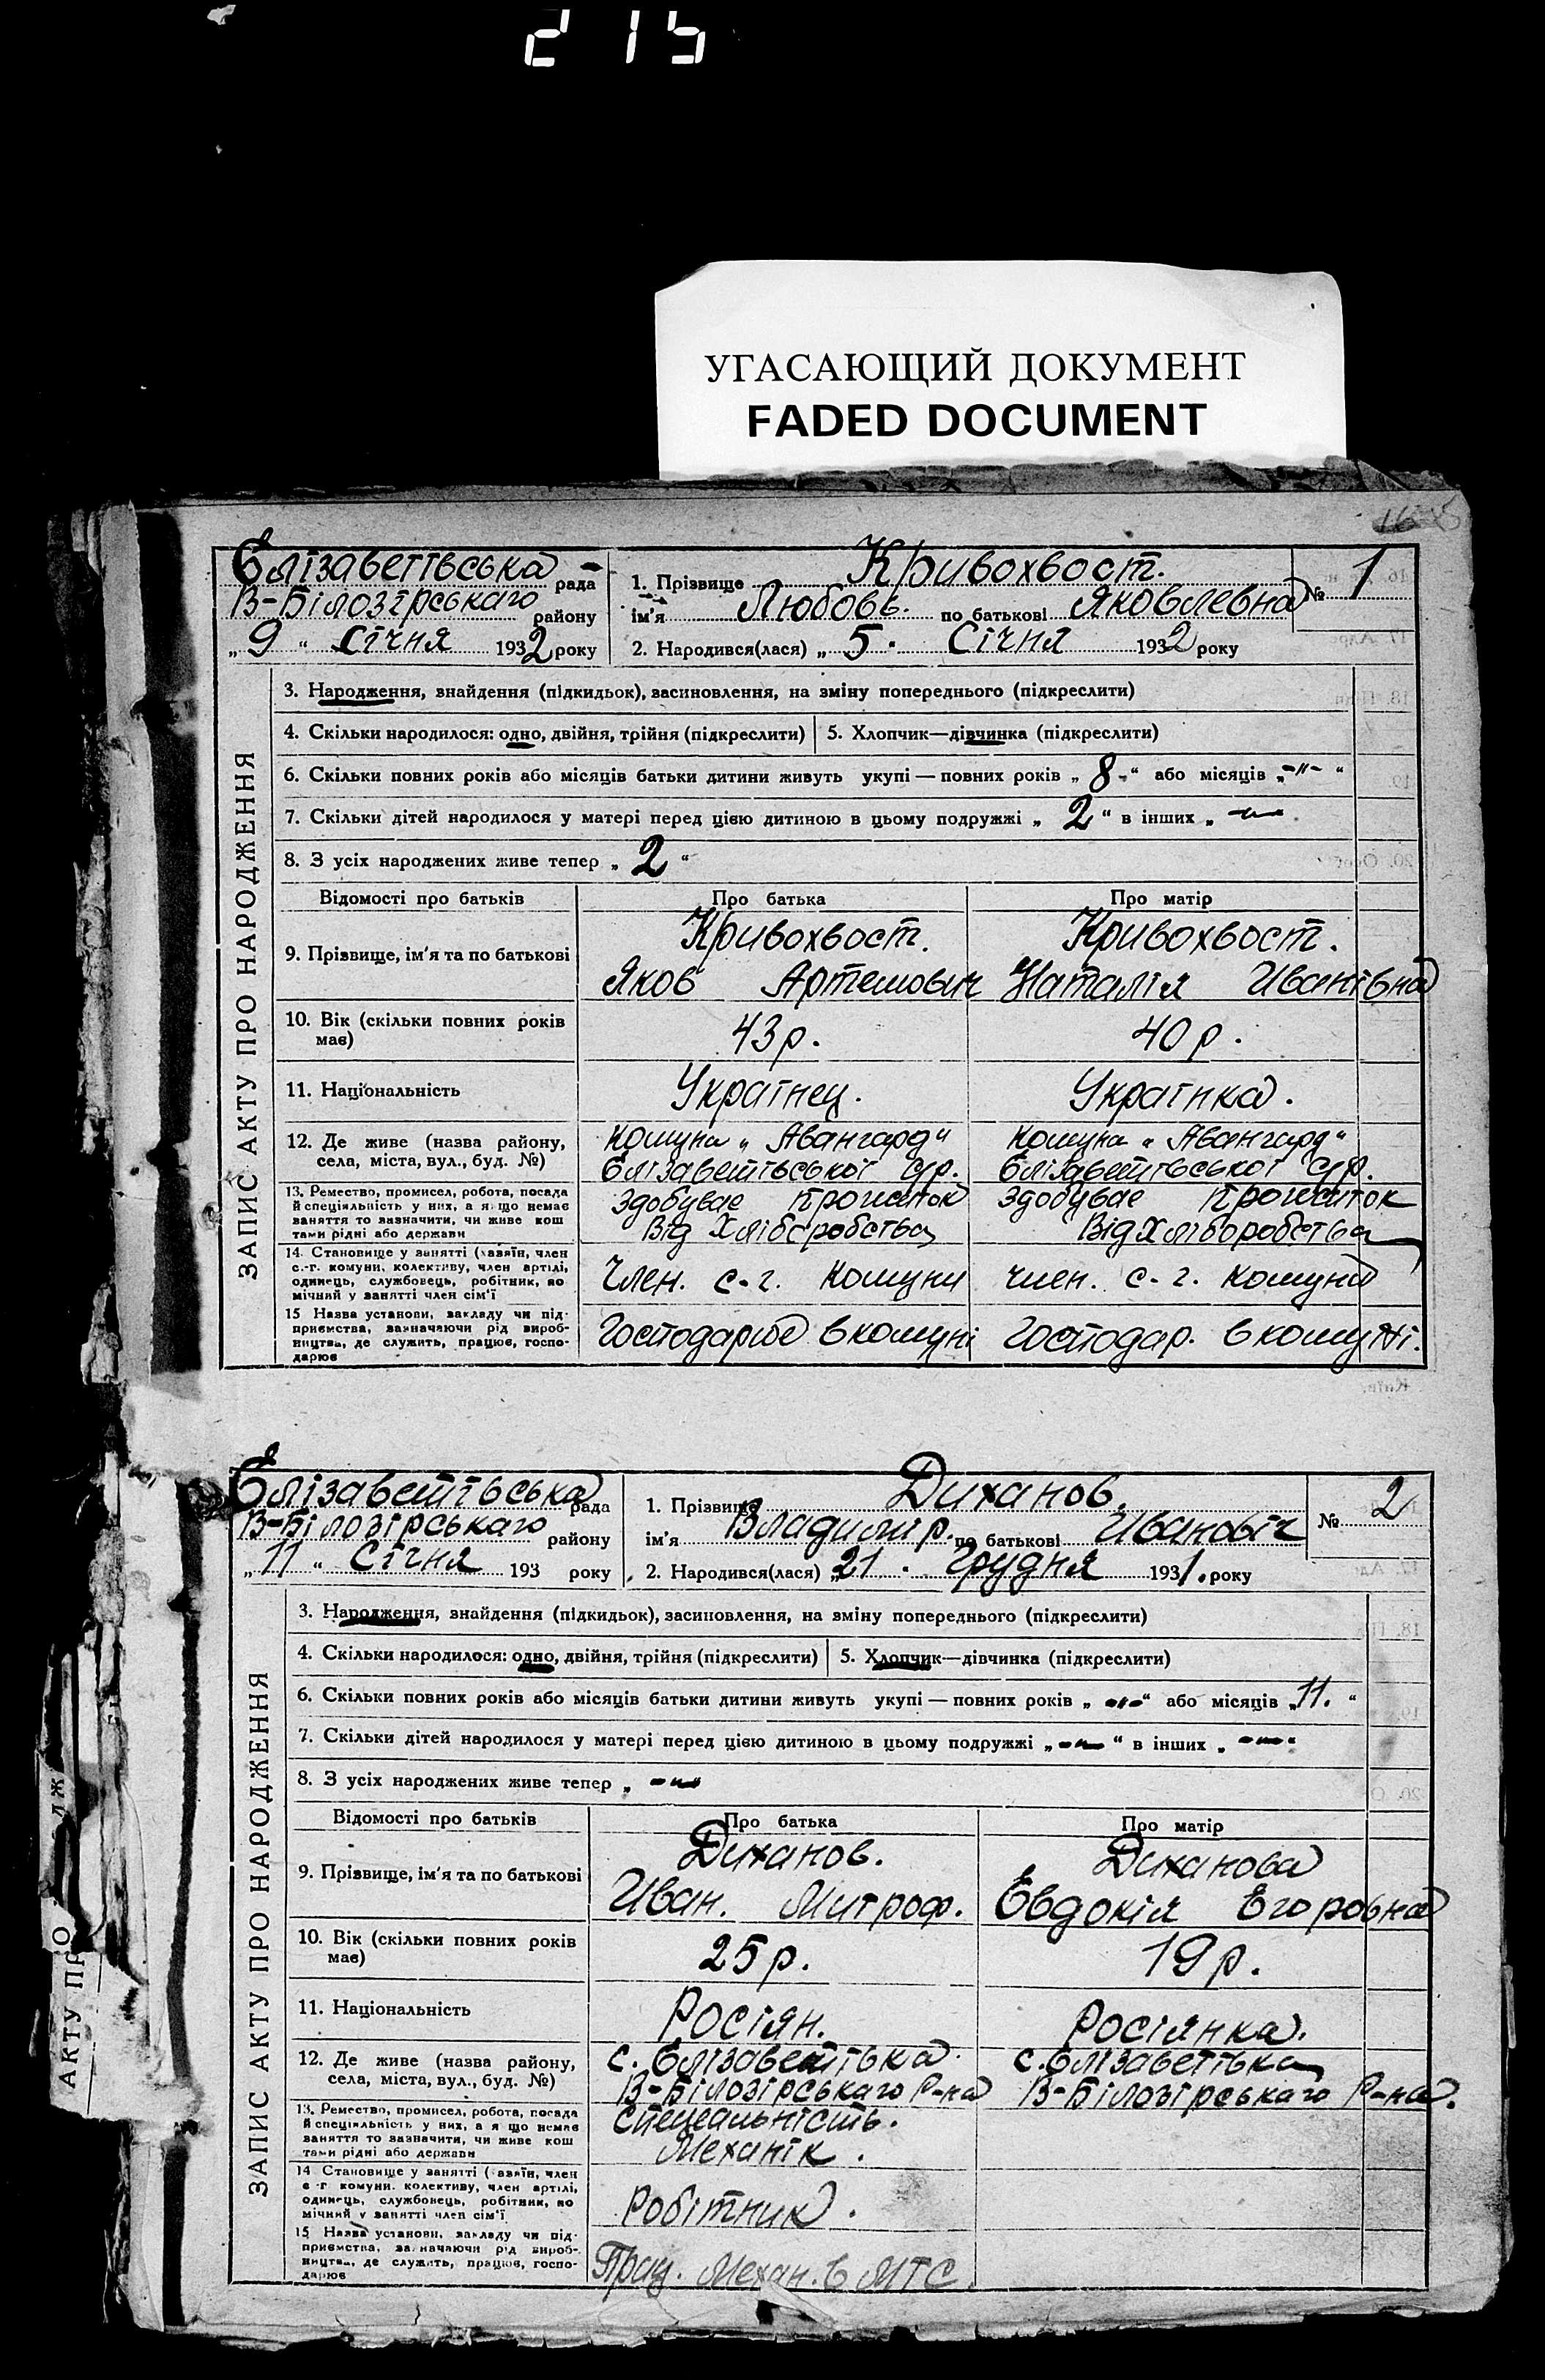 215
УГАСАЮЩИЙ ДОКУМЕНТ
FADED DOCUMENT
Єлізаветівська рада
В-Білозірськаго району
„ 9 “ Січня 1932 року
1. Прізвище Кривохвост.
ім'я Любовь. по батькові Яковлевна
№ 1
2. Народився(лася) „ 5 “ Січня 1932 року
ЗАПИС АКТУ ПРО НАРОДЖЕННЯ
3. Народження, знайдення (підкидьок), засиновлення, на зміну попереднього (підкреслити)
4. Скільки народилося: одно, двійня, трійня (підкреслити) 5. Хлопчик—дівчинка (підкреслити)
6. Скільки повних років або місяців батьки дитини живуть укупі — повних років „ 8 - “ або місяців „ -"- “
7. Скільки дітей народилося у матері перед цією дитиною в цьому подружжі „ 2 “ в інших „ -"-
8. З усіх народжених живе тепер „ 2 “
Відомості про батьків Про батька Про матір
9. Прізвище, ім'я та по батькові
Кривохвост. Яков Артемович
Кривохвост. Наталія Иванівна
10. Вік (скільки повних років має) 43 р. 40 р.
11. Національність Українец. Українка.
12. Де живе (назва району, села, міста, вул., буд. №)
Комуна „ Авангард “ Єлізаветівської с/р.
Комуна „ Авангард “ Єлізаветівської с/р.
13. Ремество, промисел, робота, посада й спеціяльність у них, а якщо немає заняття то зазначити, чи живе кош тами рідні або держави
здобувае прожиток Від Хліборобства
здобувае прожиток Від Хліборобства
14. Становище у занятті (хазяїн, член с.-г. комуни, колективу, член артілі, одинець, службовець, робітник, по мічний у занятті член сім'ї
Член. с-г. комуни член. с-г. комуни
15 Назва установи, закладу чи під- приємства, зазначаючи рід вироб- ництва, де служить, працює, госпо- дарює
Господарює в комуні Господар. в комуні.
Єлізаветівська рада
В-Білозірськаго району
„ 11 “ Січня 193 року
1. Прізвище Диханов.
ім'я Владимір. по батькові Иванович
№ 2
2. Народився(лася) „ 21 “ Грудня 1931. року
ЗАПИС АКТУ ПРО НАРОДЖЕННЯ
3. Народження, знайдення (підкидьок), засиновлення, на зміну попереднього (підкреслити)
4. Скільки народилося: одно, двійня, трійня (підкреслити) 5. Хлопчик—дівчинка (підкреслити)
6. Скільки повних років або місяців батьки дитини живуть укупі — повних років „ -"- “ або місяців „ 11. “
7. Скільки дітей народилося у матері перед цією дитиною в цьому подружжі „ -"- “ в інших „ -"- “
8. З усіх народжених живе тепер „ -"- “
Відомості про батьків Про батька Про матір
9. Прізвище, ім'я та по батькові
Диханов. Иван. Митроф.
Диханова Євдокія Егоровна
10. Вік (скільки повних років має) 25 р. 19 р.
11. Національність Росіян. Росіянка.
12. Де живе (назва району, села, міста, вул., буд. №)
с. Єлізаветівка. В-Білозірськаго Р-на
с. Єлізаветівка В-Білозірськаго Р-на.
13. Ремество, промисел, робота, посада й спеціяльність у них, а якщо немає заняття то зазначити, чи живе кош тами рідні або держави
Спецеальність. Механік.
14 Становище у занятті (хазяїн, член с-г комуни, колективу, член артілі, одинець, службовець, робітник, по мічний у занятті член сім'ї
Робітник.
15 Назва установи, закладу чи під- приємства, зазначаючи рід вироб- ництва, де служить, працює, госпо- дарює
Прац. Механ. в МТС.
АКТУ ПРО